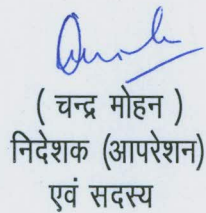 ( चन्द्र मोहन )
निदेशक (आपरेशन)
एवं सदस्य